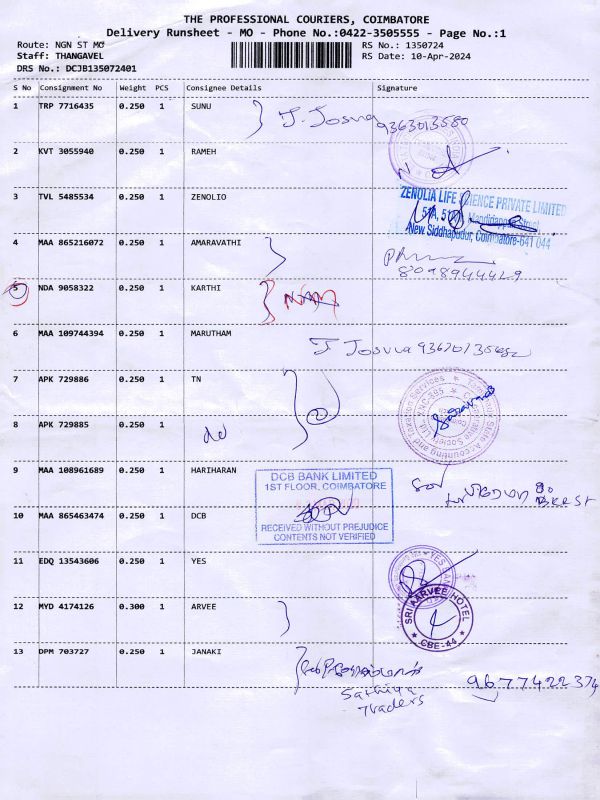 THE PROFESSIONAL COURIERS, COIMBATORE
Delivery Runsheet - MO - Phone No.:0422-3505555 - Page No.:1
Route: NGN ST MO
Staff: THANGAVEL
DRS No.: DCJB135072401
RS No.: 1350724
RS Date: 10-Apr-2024
S No Consignment No Weight PCS Consignee Details Signature
1 TRP 7716435 0.250 1 SUNU
J. Josva 9363013580
2 KVT 3055940 0.250 1 RAMEH
3 TVL 5485534 0.250 1 ZENOLIO
ZENOLIA LIFE SCIENCE PRIVATE LIMITED
New Siddhapudur, Coimbatore-641 044
4 MAA 865216072 0.250 1 AMARAVATHI
8098944429
5 NDA 9058322 0.250 1 KARTHI
6 MAA 109744394 0.250 1 MARUTHAM
J Josva
7 APK 729886 0.250 1 TN
8 APK 729885 0.250 1
do
9 MAA 108961689 0.250 1 HARIHARAN
DCB BANK LIMITED
1ST FLOOR, COIMBATORE
RECEIVED WITHOUT PREJUDICE
CONTENTS NOT VERIFIED
10 MAA 865463474 0.250 1 DCB
11 EDQ 13543606 0.250 1 YES
12 MYD 4174126 0.300 1 ARVEE
SRI AARVEE HOTEL
CBE-44
13 DPM 703727 0.250 1 JANAKI
Sathiya
Traders
9677422374